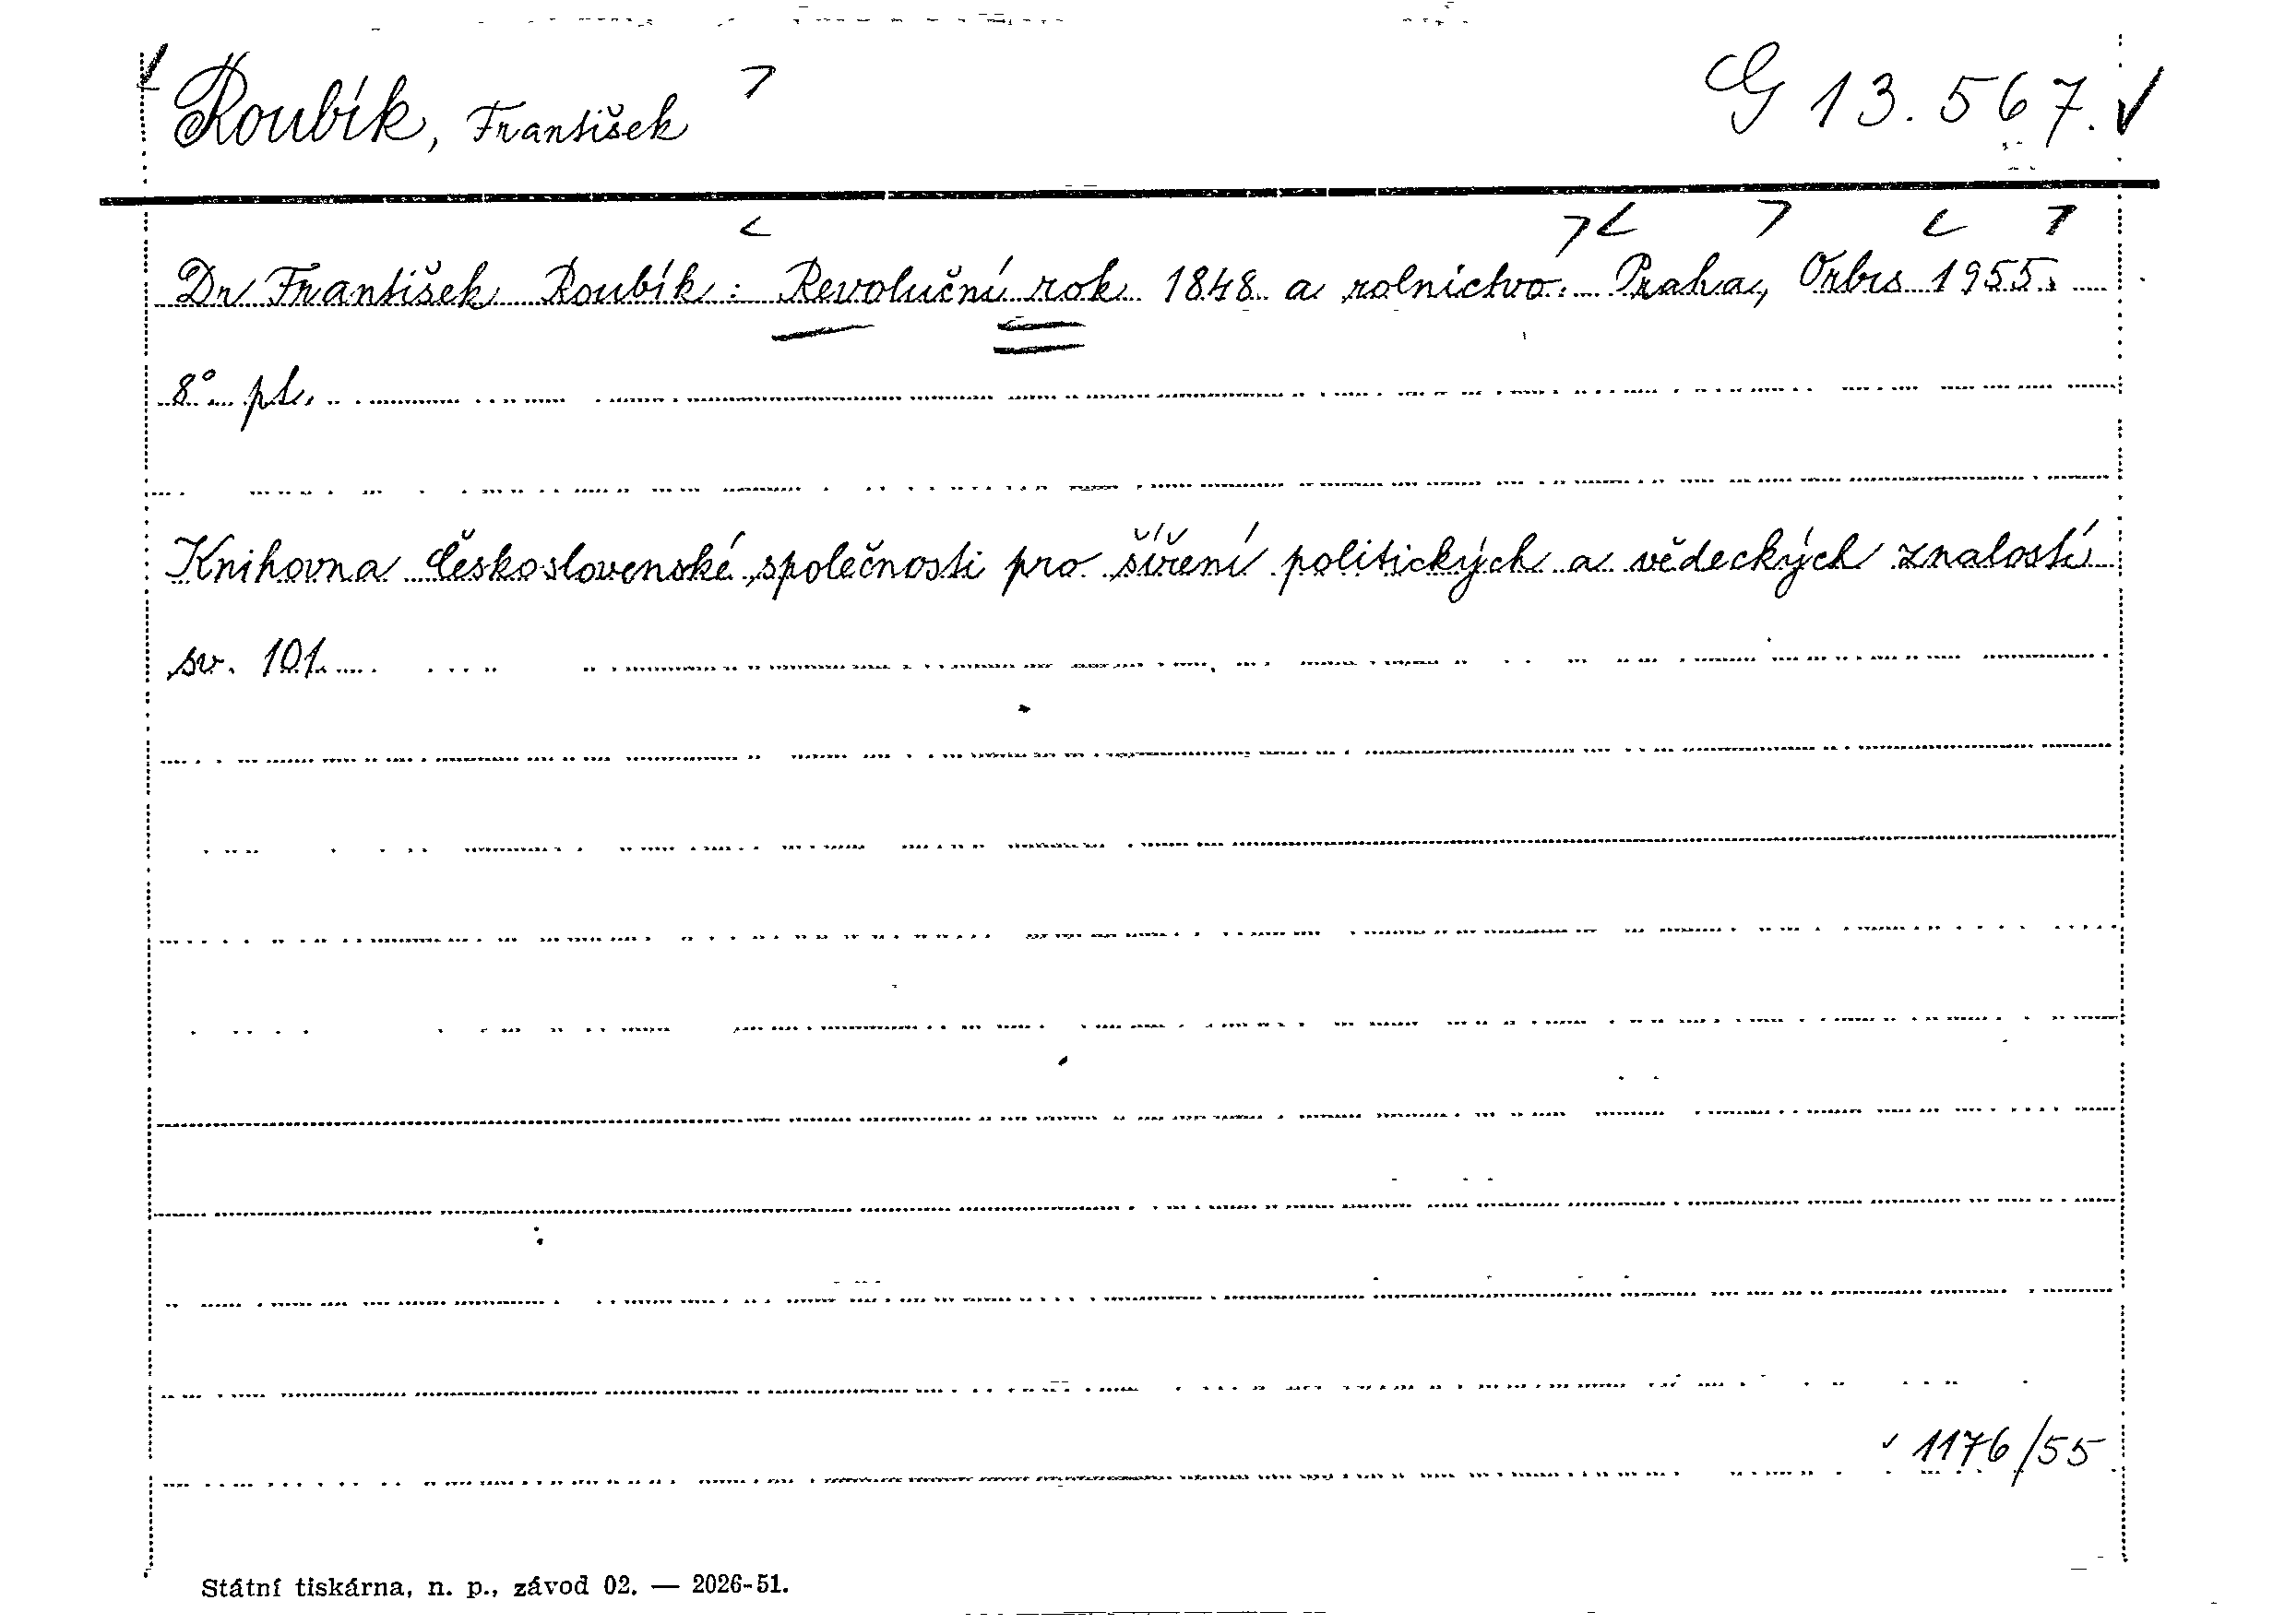 Roubík, František G 13.567.
Dr František Roubík: Revoluční rok 1848 a rolnictvo. Praha, Orbis 1955.
8° pt.
Knihovna Československé společnosti pro šíření politických a vědeckých znalostí
sv. 101.
1176/55
Státní tiskárna, n. p., závod 02. — 2026-51.